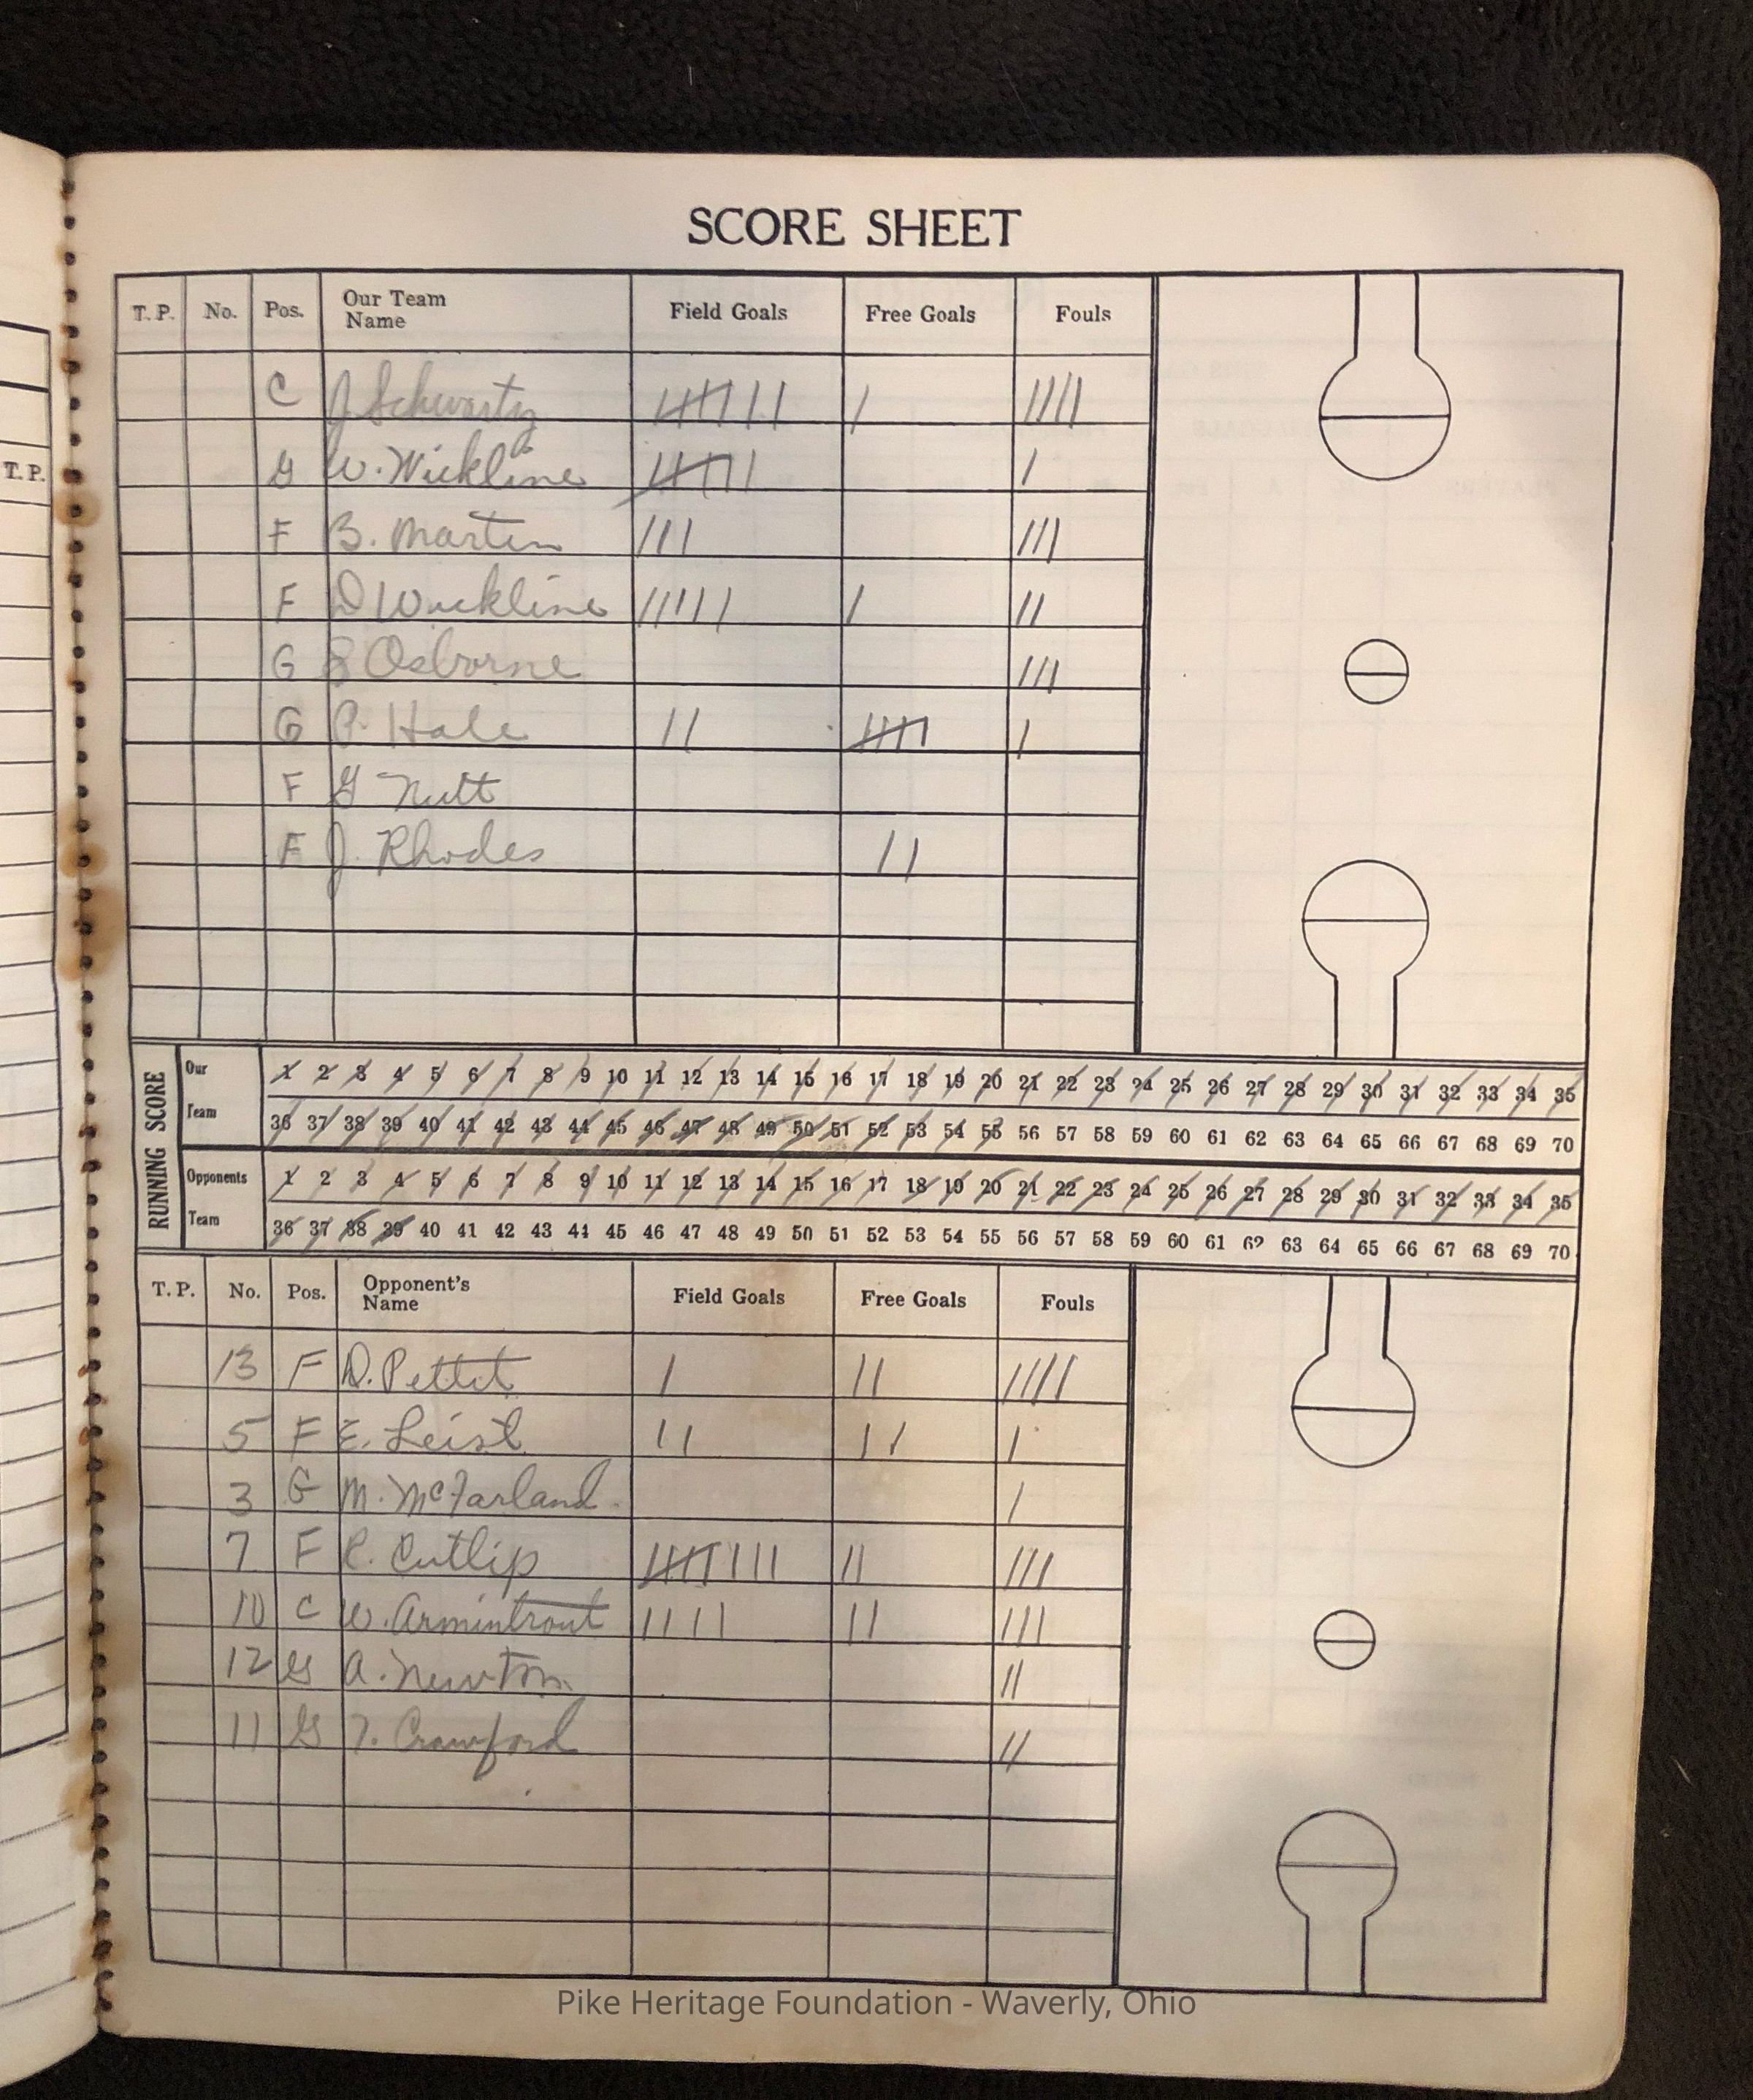 SCORE SHEET
T. P. No. Pos. Our Team Name Field Goals Free Goals Fouls
C J Schwartz 卌 || | ||||
G W. Wickline 卌 | |
F B. Martin ||| |||
F D Wickline ||||| | ||
G Osborne |||
G P. Hale || 卌 |
F G Nutt
F J. Rhodes ||
T.P.
RUNNING SCORE
Our Team
1 2 3 4 5 6 7 8 9 10 11 12 13 14 15 16 17 18 19 20 21 22 23 24 25 26 27 28 29 30 31 32 33 34 35
36 37 38 39 40 41 42 43 44 45 46 47 48 49 50 51 52 53 54 55 56 57 58 59 60 61 62 63 64 65 66 67 68 69 70
Opponents Team
1 2 3 4 5 6 7 8 9 10 11 12 13 14 15 16 17 18 19 20 21 22 23 24 25 26 27 28 29 30 31 32 33 34 35
36 37 38 39 40 41 42 43 44 45 46 47 48 49 50 51 52 53 54 55 56 57 58 59 60 61 62 63 64 65 66 67 68 69 70
T. P. No. Pos. Opponent's Name Field Goals Free Goals Fouls
13 F D. Pettit | || ||||
5 F E. Leist || || |
3 G M. McFarland. |
7 F R. Cutlip 卌 ||| || |||
10 C W. Armintrout |||| || |||
12 G A. Newton ||
11 G T. Crawford ||
Pike Heritage Foundation - Waverly, Ohio